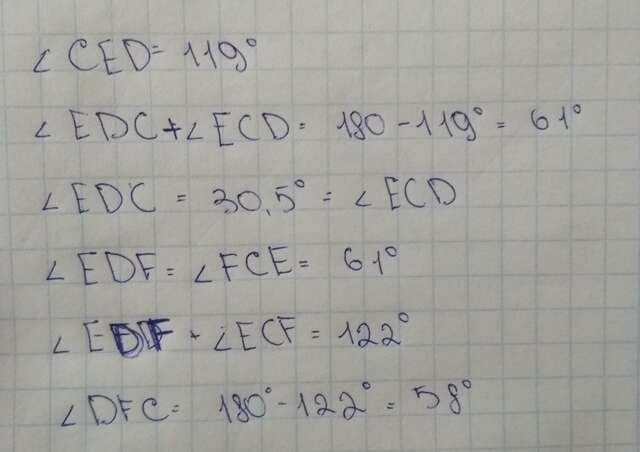 ∠ CED = 119°
∠ EDC + ∠ ECD = 180 - 119° = 61°
∠ EDC = 30,5° = ∠ ECD
∠ EDF = ∠ FCE = 61°
∠ EDF + ∠ ECF = 122°
∠ DFC = 180° - 122° = 58°